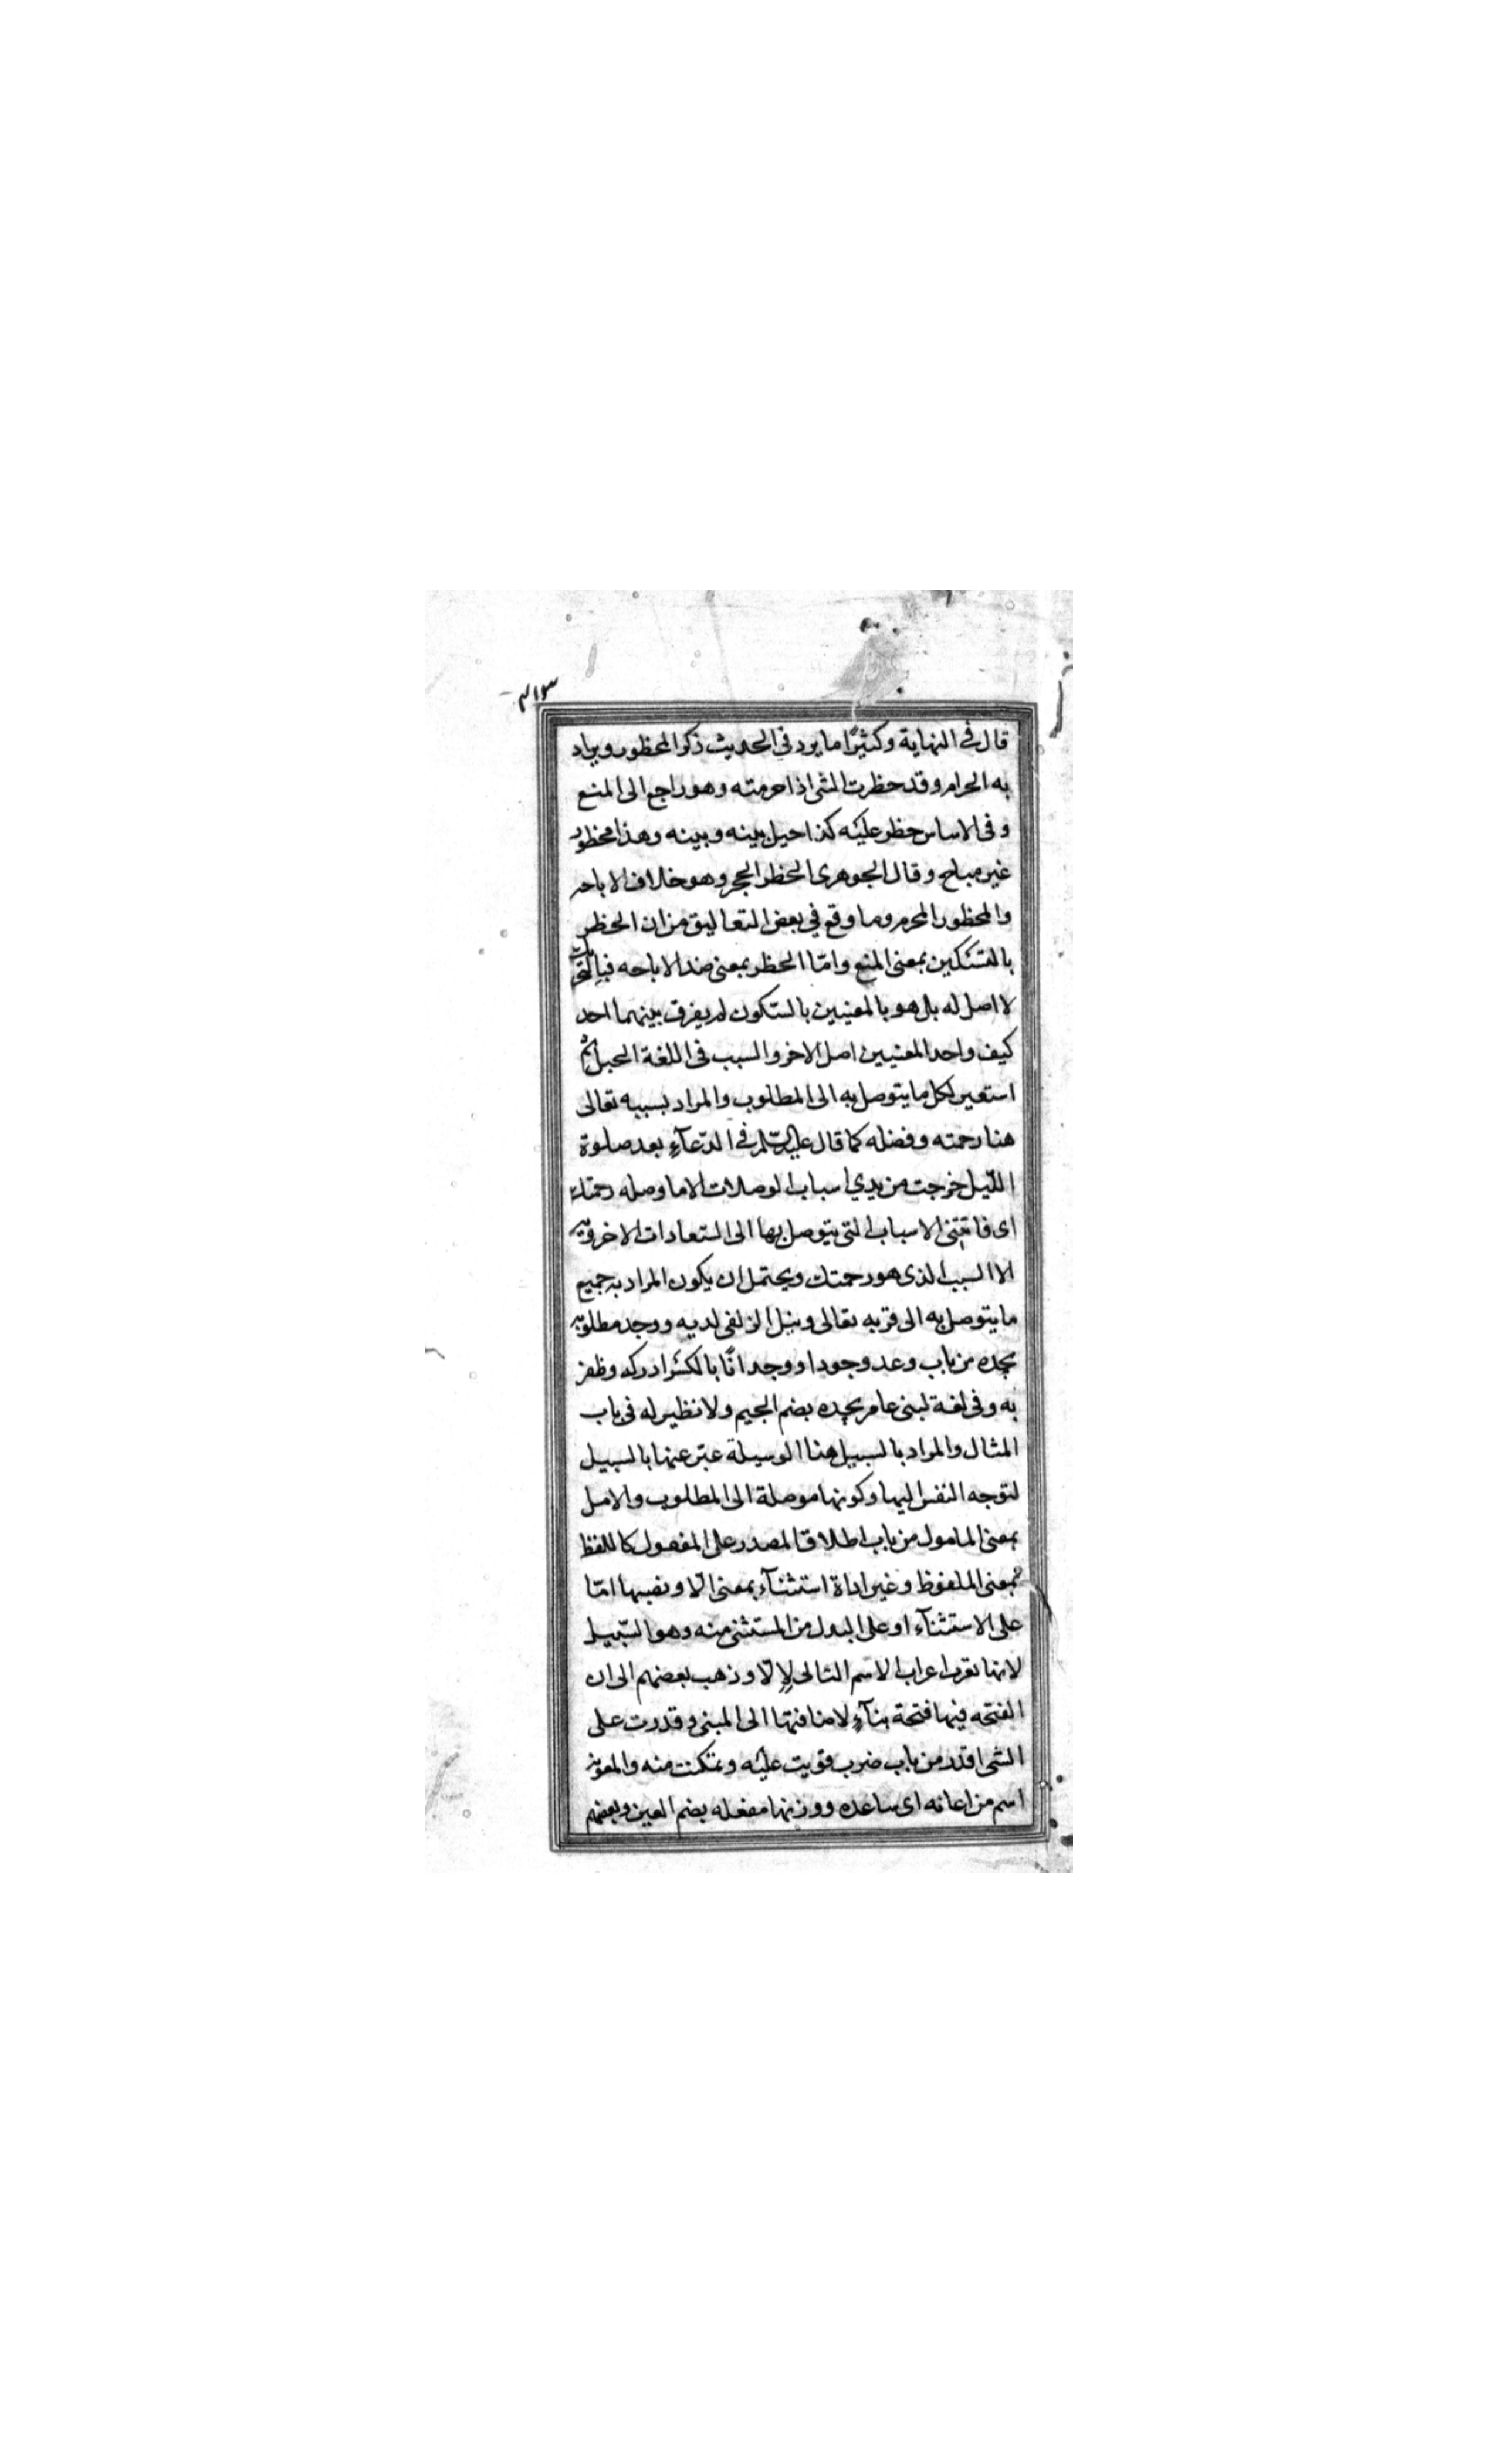 ٣١٣
قال فى النهاية وكثيرًا ما يرد في الحديث ذكر المحظور ويراد
به الحرام وقد حظرت الشى اذا حرمته وهو راجع الى المنع
وفى الاساس حظر عليه كذا حيل بينه وبينه وهذا محظور
غير مباح وقال الجوهرى الحظر الحجر وهو خلاف الاباحه
والمحظور المحرم وما وقع في بعض التعاليق من ان الحظر
بالتسكين بمعنى المنع وامّا الحظر بمعنى ضد الاباحه فبالتحريك
لا اصل له بل هو بالمعنيين بالسكون لم يفرق بينهما احد
كيف واحد المعنيين اصل الاخر والسبب فى اللغة الحبل ثم
استعير لكل ما يتوصل به الى المطلوب والمراد بسببه تعالى
هنا رحمته وفضله كما قال عليه السّلم فى الدّعآء بعد صلوة
اللّيل خرجت من يدي اسباب الوصلات الا ما وصله رحمتك
اى فاتتنى الاسباب التى يتوصل بها الى السّعادات الاخرويّه
الا السبب الذى هو رحمتك ويحتمل ان يكون المراد به جميع
ما يتوصل به الى قربه تعالى ونيل الزلفى لديه ووجد مطلوبه
يجده من باب وعد وجودا ووجدانًا بالكسر ادركه وظفر
به وفى لغة لبنى عامر يجده بضم الجيم ولا نظير له فى باب
المثال والمراد بالسبيل هنا الوسيلة عبّر عنها بالسبيل
لتوجه النفس اليها وكونها موصلة الى المطلوب والامل
بمعنى المامول من باب اطلاق المصدر على المفعول كاللفظ
بمعنى الملفوظ وغير اداة استثنآء بمعنى الّا ونصبها امّا
على الاستثنآء او على البدل من المستثنى منه وهو السّبيل
لانها تعرب اعراب الاسم التالى لإلّا وذهب بعضهم الى ان
الفتحه فيها فتحة بنآءٍ لاضافتها الى المبنى وقدرت على
الشى اقدر من باب ضرب قويت عليه وتمكنت منه والمعونه
اسم من اعانه اى ساعده ووزنها مفعله بضم العين وبعضهم